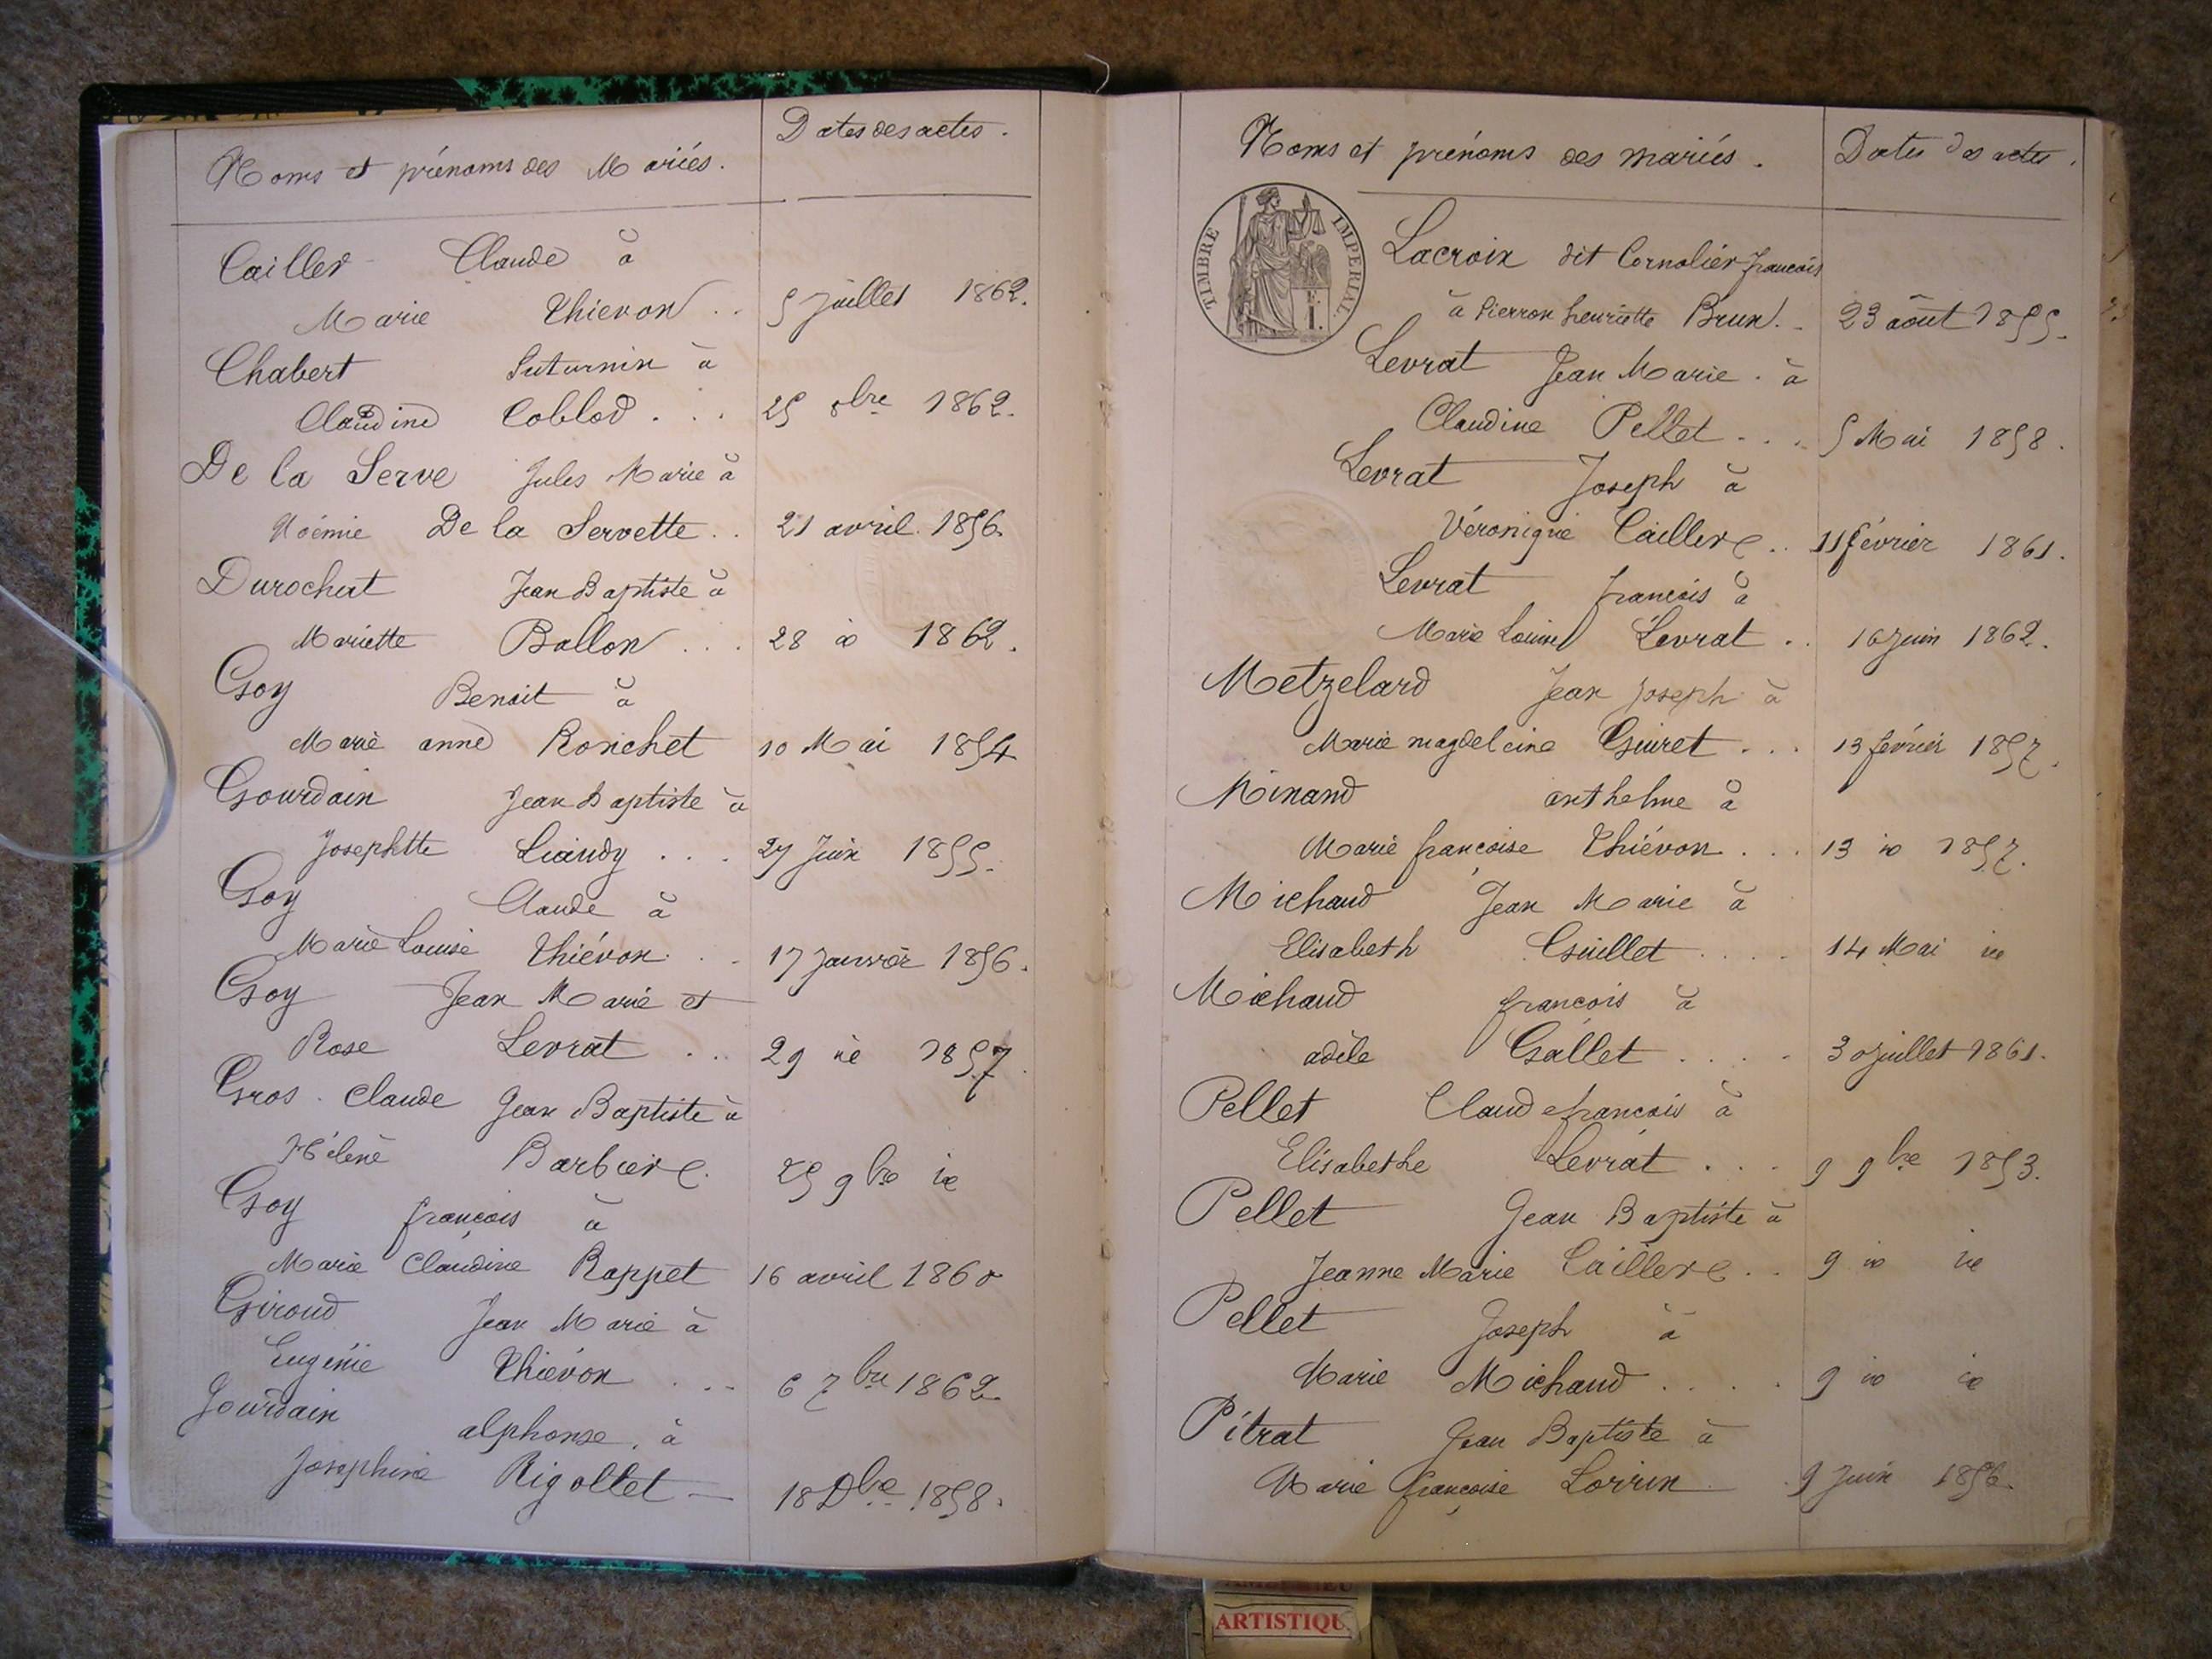 Noms et prénoms des Mariés.
Dates des actes.
Cailler Claude à
Marie Thievon .. 5 Juillet 1862.
Chabert Suturnin à
Claudine Coblod ... 25 8bre 1862.
De la Serve Jules Marie à
Noémie De la Servette .. 21 avril 1856.
Durochat Jean Baptiste à
Mariette Ballon ... 28 io 1862.
Goy Benoit à
Marie anne Ronchet 10 Mai 1854
Gourdain Jean Baptiste à
Josephtte Liaudy ... 27 Juin 1855.
Goy Claude à
Marie Louise Thiévon .. 17 Janvier 1856.
Goy Jean Marie et
Rose Levrat .. 29 ie 1857.
Gros Claude Jean Baptiste à
Hélène Barbier 25 9bre ie
Goy françois à
Marie Claudine Rappet 16 avril 1860
Giroud Jean Marie à
Eugénie Thiévon ... 6 7bre 1862
Gourdain alphonse, à
Josephine Rigollet — 18 Dbre 1858.
Noms et prénoms des mariés.
Dates des actes.
TIMBRE IMPERIAL
Lacroix dit Cornolier françois
à Pierron henriette Brun. 23 août 1855.
Levrat Jean Marie . à
Claudine Pellet ... 5 Mai 1858.
Levrat Joseph à
Véronique Caillere .. 11 février 1861.
Levrat françois à
Marie Louise Levrat .. 16 Juin 1862.
Metzelard Jean Joseph à
Marie magdeleine Guiret ... 13 février 1857.
Minand anthelme à
Marie françoise Thiévon ... 13 io 1857.
Michaud Jean Marie à
Elisabeth Guillet .... 14 Mai ie
Michaud françois à
adèle Gallet .... 30 juillet 1861.
Pellet Claude françois à
Elisabethe Levrat ... 9 9bre 1853.
Pellet Jean Baptiste à
Jeanne Marie Caillere .. 9 io ie
Pellet Joseph à
Marie Michaud .... 9 io ie
Pitrat Jean Baptiste à
Marie françoise Lorrin . 9 Juin 1856.
ARTISTIQU